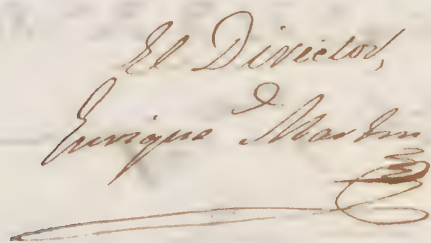 El Director,
Enrique Martin